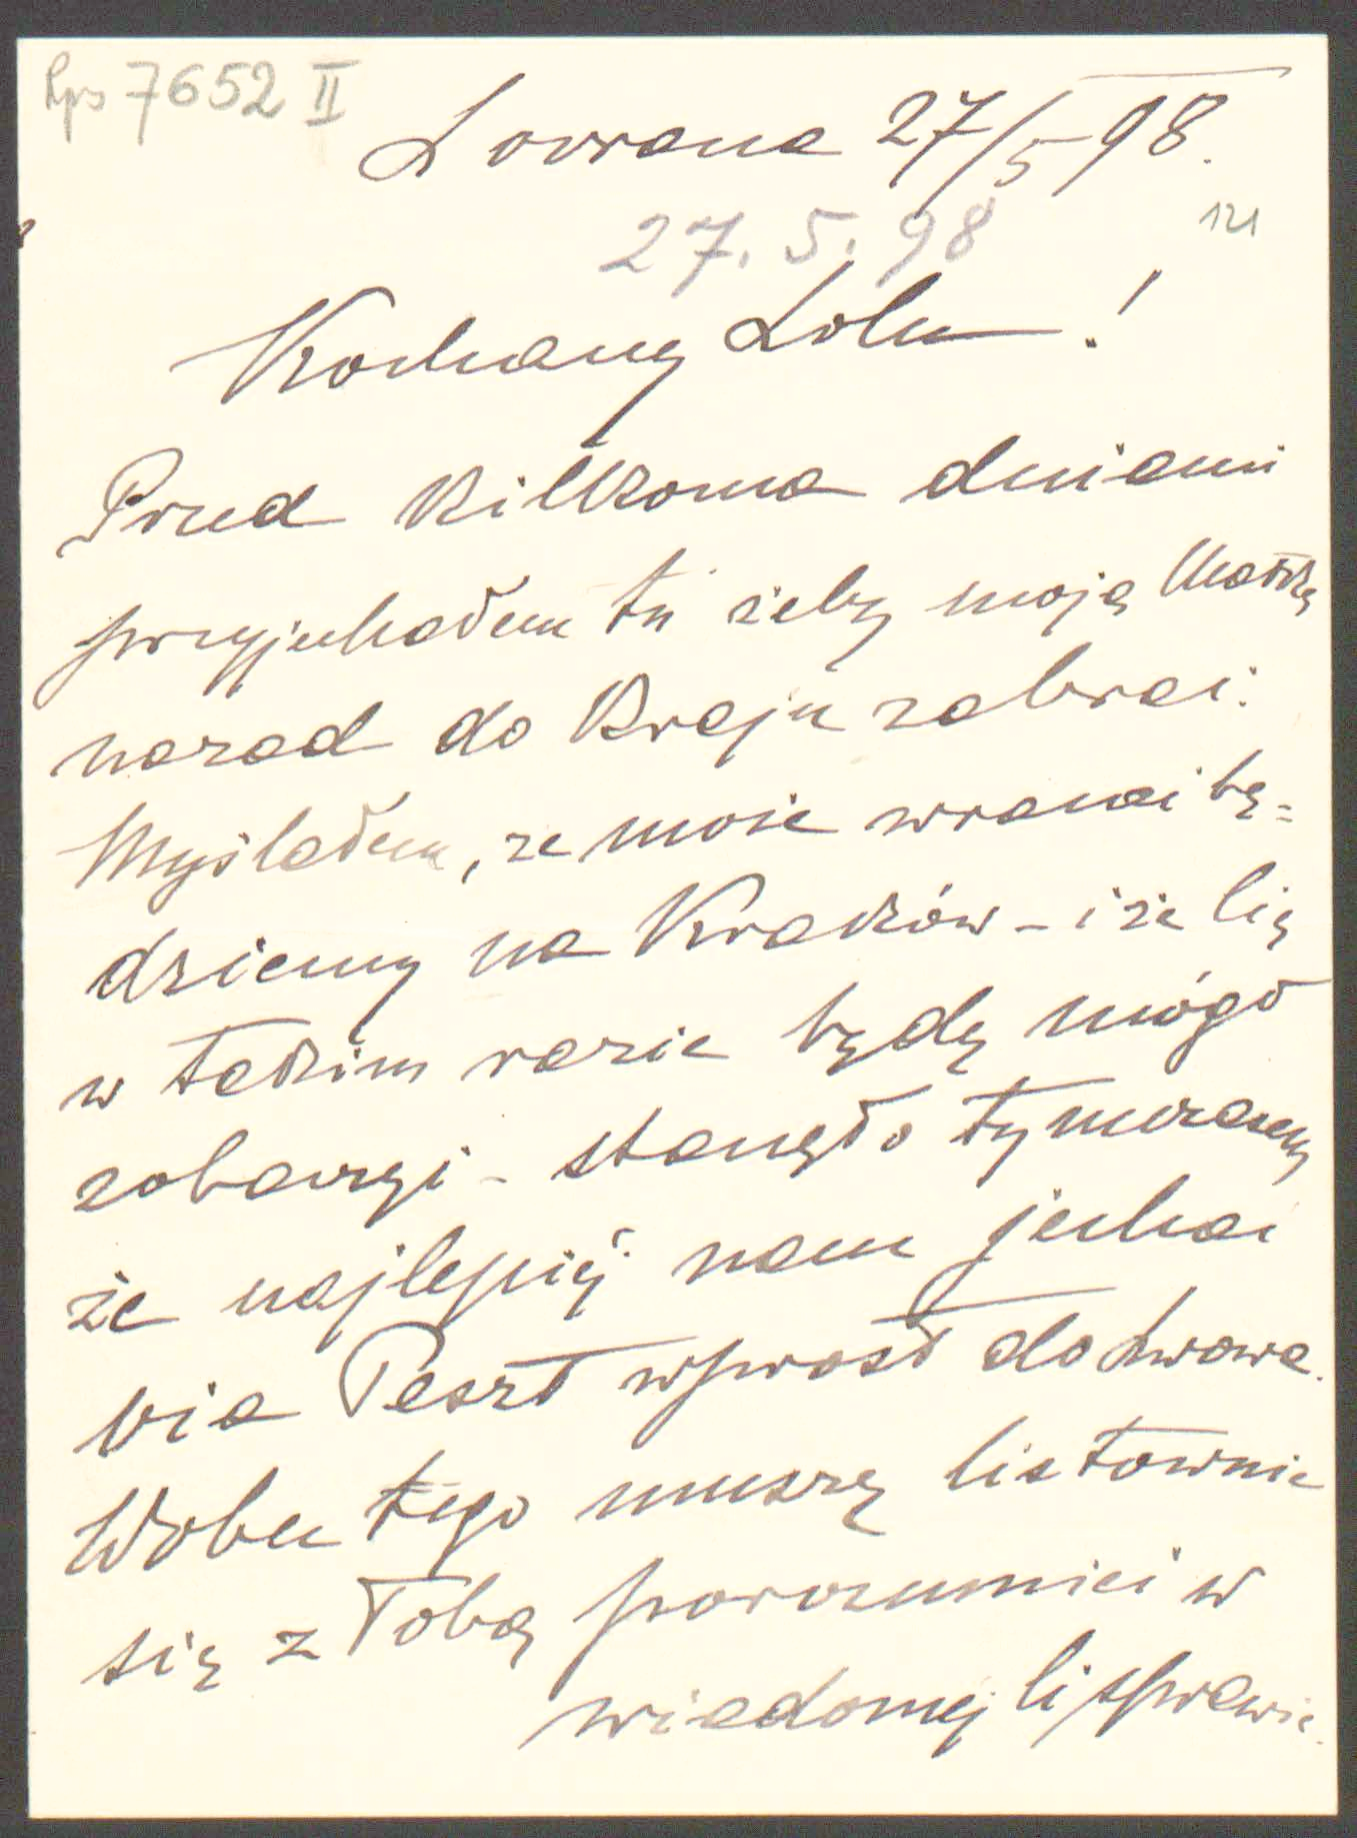 Rps 7652 II
Lovrana 27/5 98.
121
27. 5. 98
Kochany Lolu!
Przed kilkoma dniami
przyjechałem tu żeby moją Matkę
nazad do Kraju zabrać.
Myślałem, że może wracać bę=
dziemy na Kraków – i że Cię
w takim razie będę mógł
zobaczyć – stanęło tymczasem
że najlepiéj nam jechać
via Peszt wprost do Lwowa.
Wobec tego muszę listownie
się z Tobą porozumieć w
wiadomej Ci sprawie.